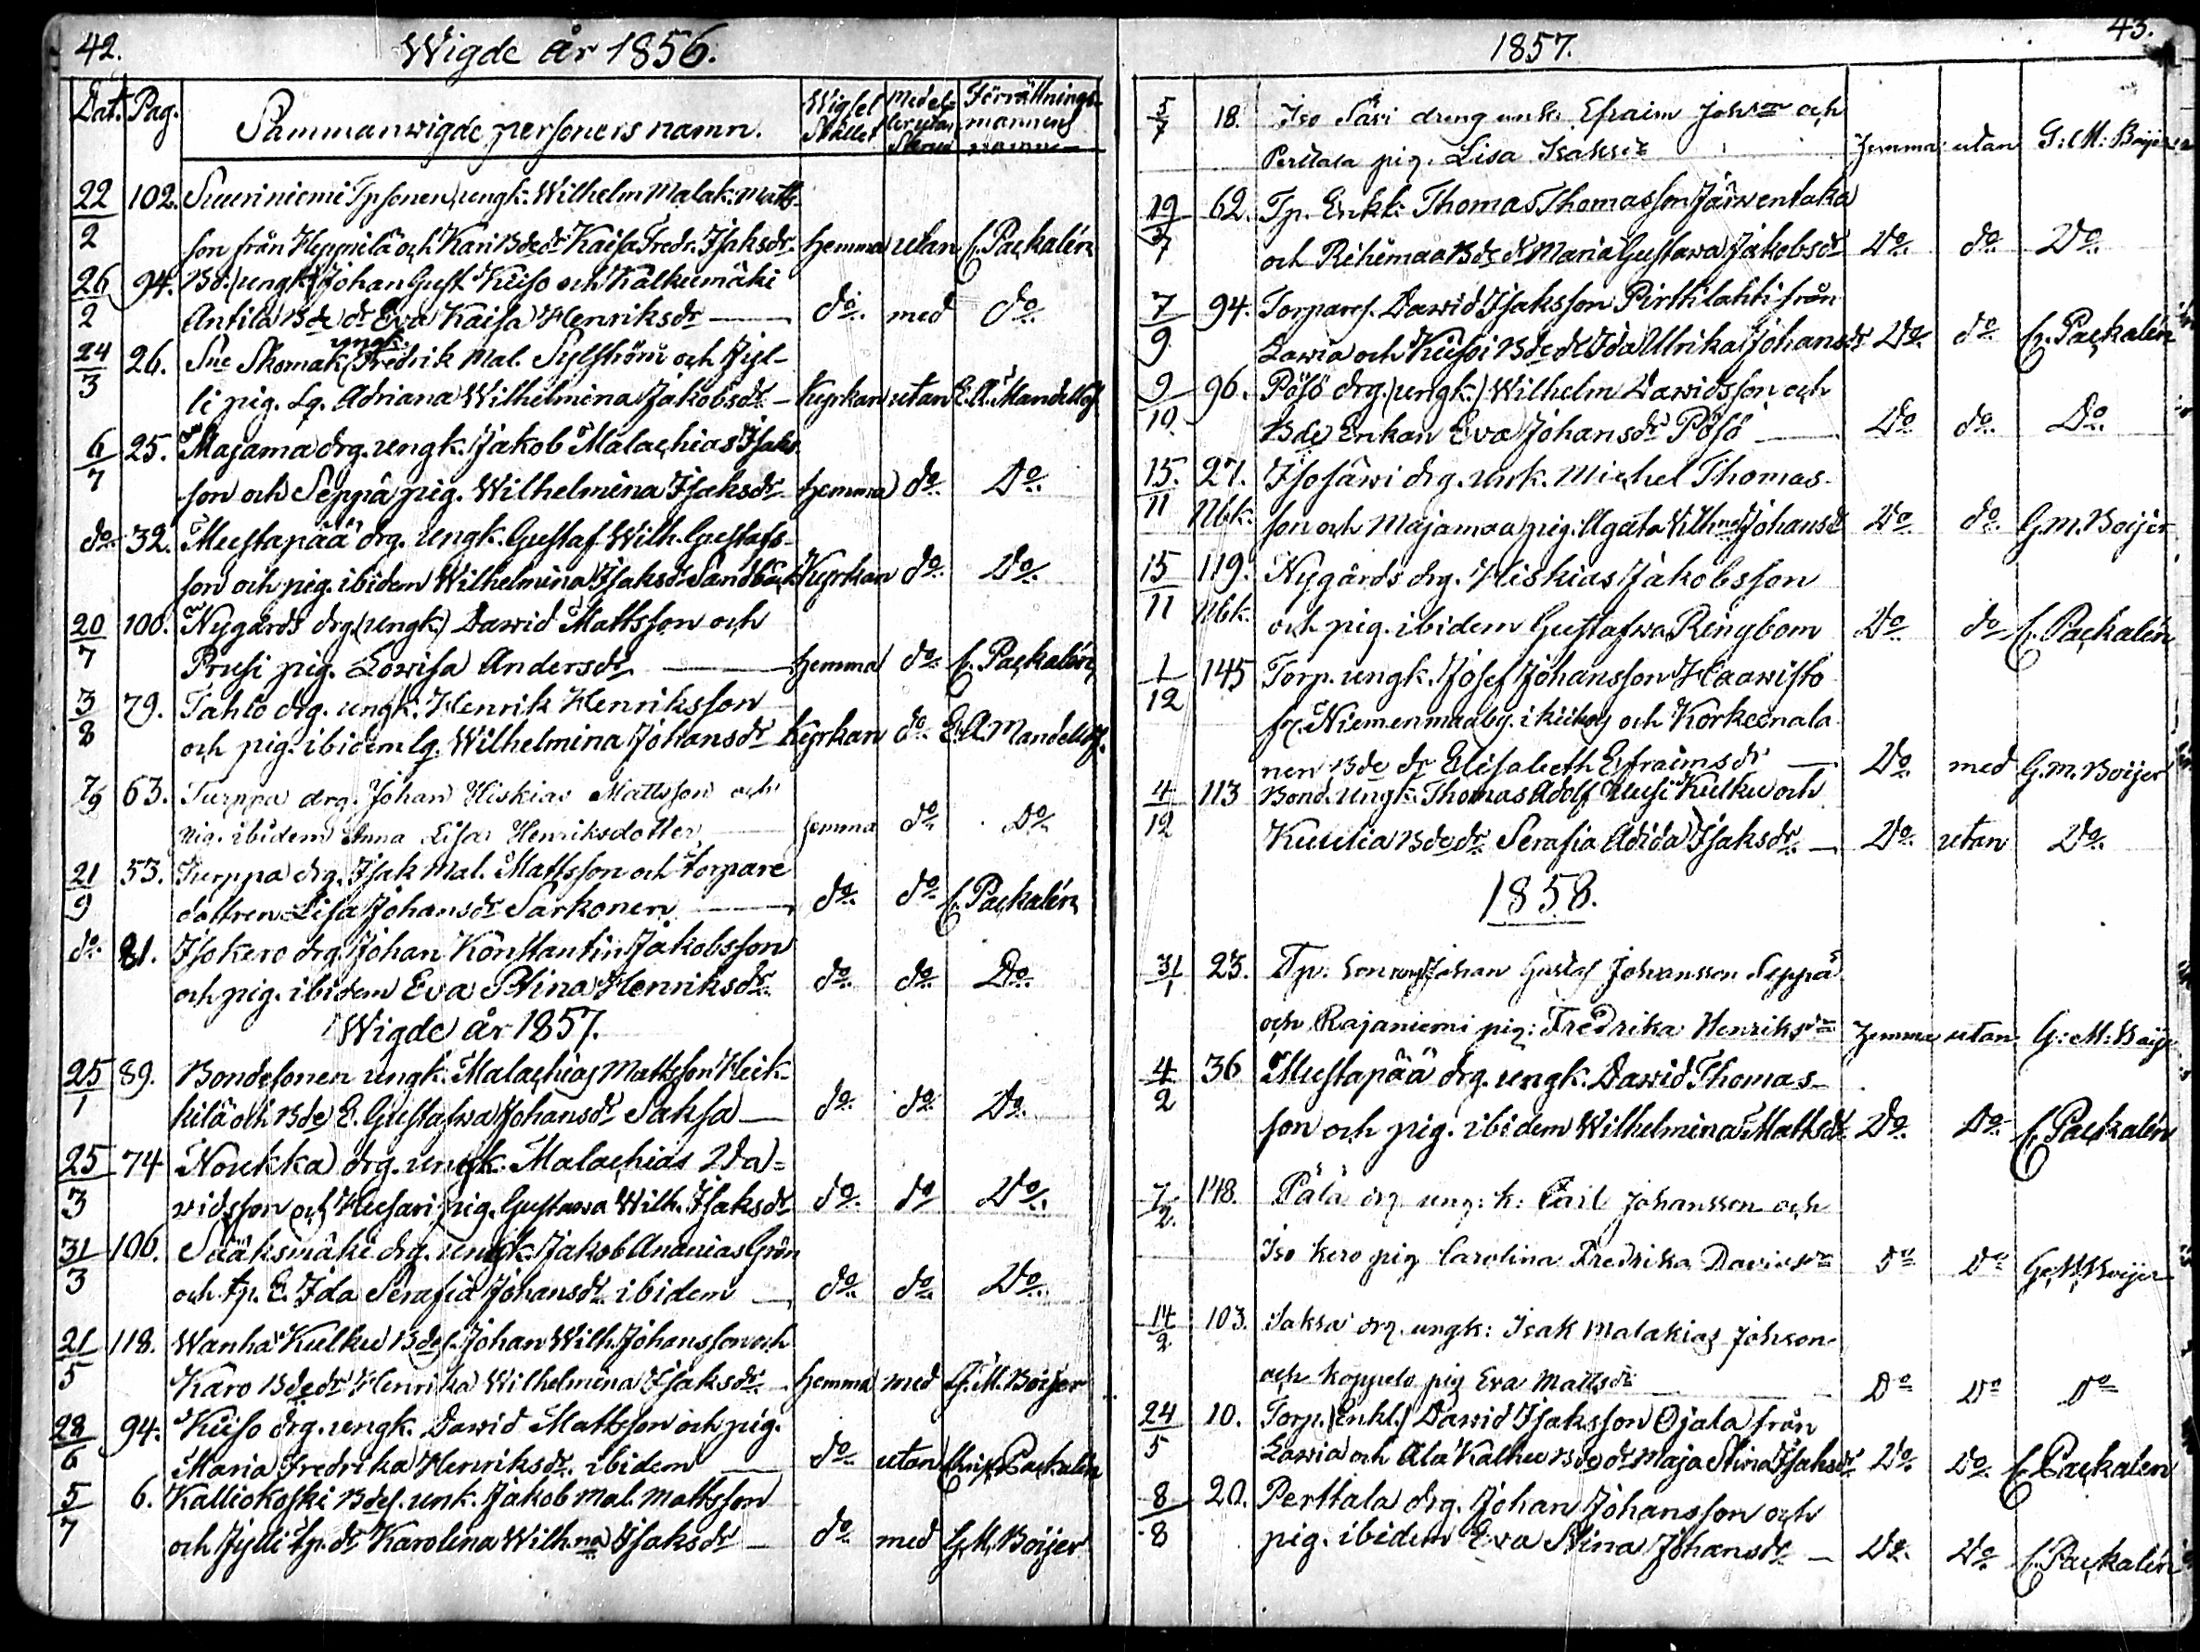 42.
Wigde år 1856.
Dat. Pag. Sammanwigde personers namn. Wigsel Stället Medel= ler utan Skrud Förrättnings- mannens namn
22/2 102. Suuriniemi Tpsonen, ungk. Wilhelm Malak. Matts-
son från Heppnilä och Kari Bdedr Kaisa Fredr. Isaksdr. hemma utan C. Packalén
26/2 94. Bd. (ungk.) Johan Gust. Kuiso och Kalkumäki
Antila Bde dr Eva Kaisa Henriksdr — do. med do.
24/3 26. Sne Skomak. ungk. Fredrik Mal. Sylström och Jyl-
li pig. Lg. Adriana Wilhelmina Jakobsdr — Kyrkan utan E. A. Mandellöf
6/7 25. Majama drg. ungk. Jakob Malachias Isaks-
son och Seppä pig. Wilhelmina Isaksdr hemma do. Do.
do. 32. Mustapää drg. ungk. Gustaf Wilh. Gustafs-
son och pig. ibidem Wilhelmina Isaksdr Sandbäck Kyrkan do. Do.
20/7 100. Nygårds drg. (ungk.) Dawid Mattsson och
Prusi pig. Lowisa Andersdr. — hemma do. C. Packalén
3/8 79. Tahlo drg. ungk. Henrik Henriksson
och pig. ibidem lg. Wilhelmina Johansdr Kyrkan do. E. A. Mandellöf.
7/9 63. Turppa drg. Johan Hiskias Mattsson och
pig. ibidem Anna Lisa Henriksdotter hemma do. Do.
21/9 53. Turppa drg. Isak Mal. Mattsson och torpare
dottren Lisa Johansdr Sarkonen — do. do. C. Packalén
do. 81. Isokero drg. Johan Konstantin Jakobsson
och pig. ibidem Eva Stina Henriksdr. do. do. Do.
Wigde år 1857.
25/1 89. Bondesonen ungk. Malachias Mattsson Heik-
kilä och Bde E. Gustafwa Johansdr Saksa — do. do. Do.
25/3 74 Noukka drg. ungk. Malachias Da=
widsson och Husari pig. Gustawa Wilh. Isaksdr do. do Do.
31/3 106. Sääksmäki drg. ungk. Jakob Ananias Grön
och tp. E. Ida Serafia Johansdr. ibidem — do. do. Do.
21/5 118. Wanha Kulku Bdes. Johan Wilh. Johansson och
Karo Bdedr Henrika Wilhelmina Isaksdr. hemma med G. M. Boijer
28/6 94. Kuiso drg. ungk. Dawid Mattsson och pig.
Maria Fredrika Henriksdr. ibidem — do utan Chr. Packalén
5/7 6. Kalliokoski Bdes. unk. Jakob Mal. Mattsson
och Jylli tp. dr Karolina Wilh.na Isaksdr — do. med G. M. Boijer
43.
1857.
5/7 18. Iso Säwi dreng unk. Efraim Johson och
Perttala pig. Lisa Isaksdr hemma utan G: M: Boijer
19/7 62. Tp. Enkl. Thomas Thomasson Järwentaka
och Rihimaa Bde dr Maria Gustawa Jakobsdr Do. do. Do.
7/9 94. Torpares. Dawid Isaksson Pirttilahti från
Lawia och Kuisoi Bde dr Ida Ulrika Johansdr Do. do. C. Packalén
9/10. 96. Pösö drg. (ungk.) Wilhelm Dawidsson och
Bde Enkan Eva Johansdr Pösö — Do. do. Do.
15./11 27. Nbk. Isosäwi drg. unk. Michel Thomas-
son och Majamaa pig. Agata Vilh.na Johansdr Do. do. G. M. Boijer
15/11 119. Nbk. Nygårds drg. Hiskias Jakobsson
och pig. ibidem Gustafwa Ringbom Do. do C. Packalén
1/12 145 Torp. ungk. Josef Johansson Haawisto
fr. Niemenmaa by. i Kiikois och Korkeenala-
nen Bde dr Elisabeth Efraimsdr — Do. med G. M. Boijer
4/12 113 Bond. ungk. Thomas Adolf Uusi Kulku och
Kuulia Bdedr. Serafia Adida Isaksdr. — Do. utan Do.
1858.
31/1 23. Tp. Son ungk. Johan Gustaf Johansson Seppä
och Rajaniemi pig: Fredrika Henriksdr hemma utan G: M: Boije
4/2 36 Mustapää drg. ungk. Dawid Thomas-
son och pig. ibidem Wilhelmina Mattsdr Do. Do. C. Packalén
7/2. 148. Pälä drg ung: k: Carl Johansson och
Iso Kero pig Carolina Fredrika Davidsdr Do Do G. M. Boijer
14/2 103. Saksa drg. ungk: Isak Malakias Johsson
och Koppelo pig Eva Mattsdr Do Do Do
24/5 10. Torp. (Enkl.) Dawid Isaksson Ojala från
Lawia och Ala Kalkku Bde dr Maja Stina Isaksdr Do. Do. C. Packalén
8/8 20. Perttala drg. Johan Johansson och
pig. ibidem Eva Stina Johansdr. — Do. Do C. Packalén